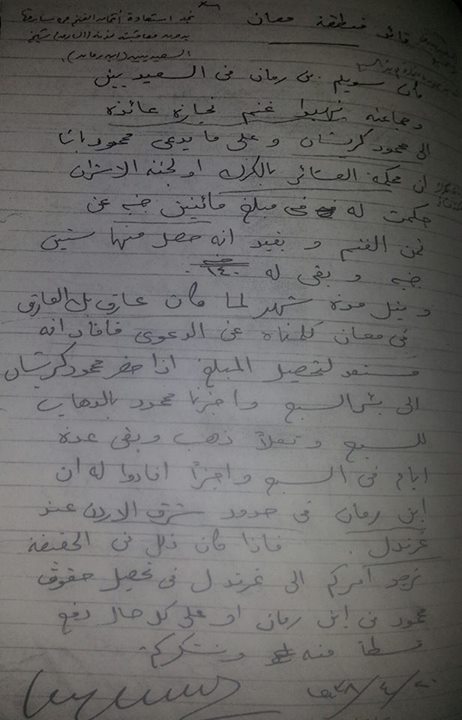 قائد منطقة معان
كان سويلم بن رمان من السعيديين
وجماعته نهبوا غنم تجارة عائدة
الى محمود كريشان وعلى ما يدعي محمود بان
ان محكمة العشائر بالكرك او لجنة الاشراف
حكمت له في مبلغ مائتين جنيه عن
ثمن الغنم ويفيد انه حصل منها ستين
جنيه وبقي له ١٤٠ جنيه
وقبل مدة شهر لما كان عارف بك العارف
في معان كلمناه عن الدعوى فافاد انه
مستعد لتحصيل المبلغ اذا حضر محمود كريشان
الى بئر السبع واخبرنا محمود بالذهاب
للسبع وفعلاً ذهب وبقي عدة
ايام في السبع واخيراً افادوا له ان
ابن رمان في حدود شرق الاردن عند
غرندل. فاذا كان ذلك في الحقيقة
نرجو امركم الى غرندل في تحصيل حقوق
محمود من ابن رمان او على كل حال دفع
قسطاً منه ونشكركم